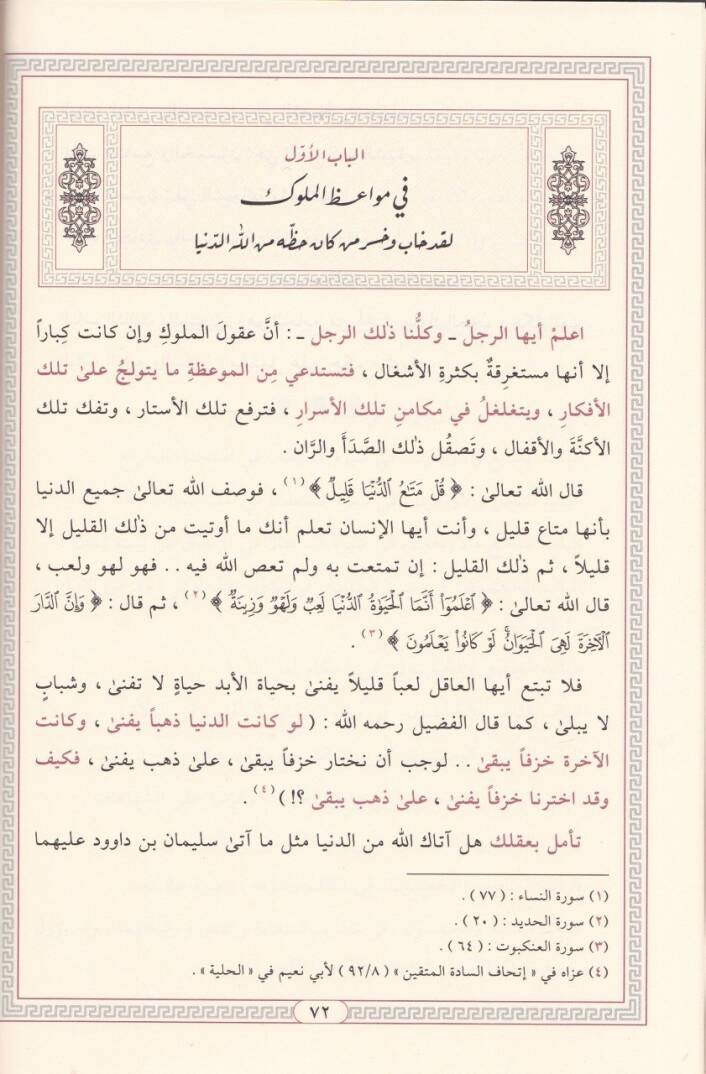 الباب الأوّل
في مواعظ الملوك
لقد خاب وخسر من كان حظّه من الله الدّنيا
اعلمْ أيها الرجلُ ـ وكلُّنا ذلك الرجل ـ : أنَّ عقولَ الملوكِ وإن كانت كِباراً
إلا أنها مستغرِقةٌ بكثرةِ الأشغال ، فتستدعي مِن الموعظةِ ما يتولجُ علىٰ تلك
الأفكارِ ، ويتغلغلُ في مكامنِ تلك الأسرارِ ، فترفع تلك الأستار ، وتفك تلك
الأكنَّةَ والأقفال ، وتَصقُل ذٰلك الصَّدَأَ والرَّان .
قال الله تعالىٰ : ﴿ قُلْ مَتَاعُ ٱلدُّنْيَا قَلِيلٌ ﴾(١) ، فوصف الله تعالىٰ جميع الدنيا
بأنها متاع قليل ، وأنت أيها الإنسان تعلم أنك ما أوتيت من ذٰلك القليل إلا
قليلاً ، ثم ذٰلك القليل : إن تمتعت به ولم تعص الله فيه .. فهو لهو ولعب ،
قال الله تعالىٰ : ﴿ ٱعْلَمُوٓا۟ أَنَّمَا ٱلْحَيَوٰةُ ٱلدُّنْيَا لَعِبٌ وَلَهْوٌ وَزِينَةٌ ﴾(٢) ، ثم قال : ﴿ وَإِنَّ ٱلدَّارَ
ٱلْآخِرَةَ لَهِىَ ٱلْحَيَوَانُ ۚ لَوْ كَانُوا۟ يَعْلَمُونَ ﴾(٣) .
فلا تبتع أيها العاقل لعباً قليلاً يفنىٰ بحياة الأبد حياةٍ لا تفنىٰ ، وشبابٍ
لا يبلىٰ ، كما قال الفضيل رحمه الله : ( لو كانت الدنيا ذهباً يفنىٰ ، وكانت
الآخرة خزفاً يبقىٰ .. لوجب أن نختار خزفاً يبقىٰ ، علىٰ ذهب يفنىٰ ، فكيف
وقد اخترنا خزفاً يفنىٰ ، علىٰ ذهب يبقىٰ ؟! )(٤) .
تأمل بعقلك هل آتاك الله من الدنيا مثل ما آتىٰ سليمان بن داوود عليهما
(١) سورة النساء : ( ٧٧ ) .
(٢) سورة الحديد : ( ٢٠ ) .
(٣) سورة العنكبوت : ( ٦٤ ) .
(٤) عزاه في « إتحاف السادة المتقين » ( ٩٢/٨ ) لأبي نعيم في « الحلية » .
٧٢